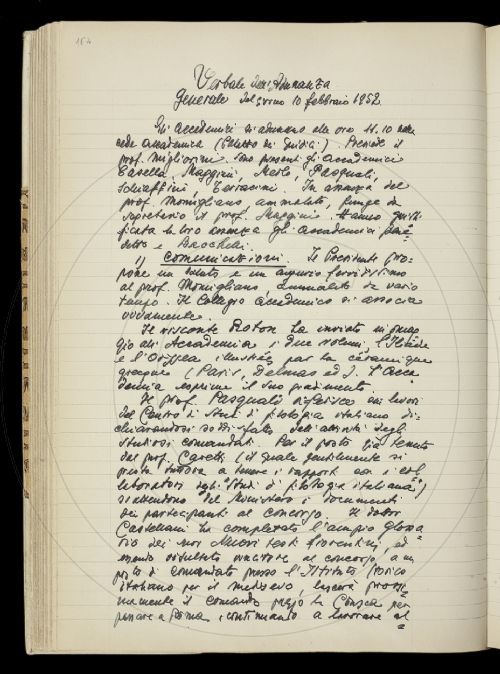 164
Verbale dell'Adunanza
Generale del giorno 10 febbraio 1952
Gli Accademici si adunano alle ore 11.10 nella
sede accademica (Palazzo dei Giudici). Presiede il
prof. Migliorini. Sono presenti gli Accademici
Casella, Maggini, Merlo, Pasquali,
Schiaffini, Terracini. In assenza del
prof. Momigliano, ammalato, funge da
segretario il prof. Maggini. Hanno giusti-
ficato la loro assenza gli Accademici
e Bacchelli.
1) Comunicazioni. Il Presidente pro-
pone un saluto e un augurio fervidissimo
al prof. Momigliano, ammalato da vario
tempo. Il Collegio Accademico si associa
vivamente.
Il visconte Roton ha inviato in omag-
gio all'Accademia i due volumi, l'Iliade
e l'Odyssée illustrés par la céramique
grecque (Paris, Delmas ed.). L'Acca-
demia esprime il suo gradimento.
Il prof. Pasquali riferisce sui lavori
del Centro di Studi di filologia italiana di-
chiarandosi soddisfatto dell'attività degli
studiosi comandati. Per il posto già tenuto
dal prof. Caretti (il quale gentilmente si
presta tuttora a tenere i rapporti con i col-
laboratori agli "Studi di filologia italiana")
si attendono dal Ministero i documenti
dei partecipanti al concorso. Il dottor
Castellani ha completato l'ampio glossa-
rio dei suoi Nuovi testi fiorentini, ed
essendo risultato vincitore al concorso a un
posto di comandato presso l'Istituto storico
italiano per il medioevo, lascerà prossi-
mamente il comando presso la Crusca per
passare a Roma, continuando a lavorare al-